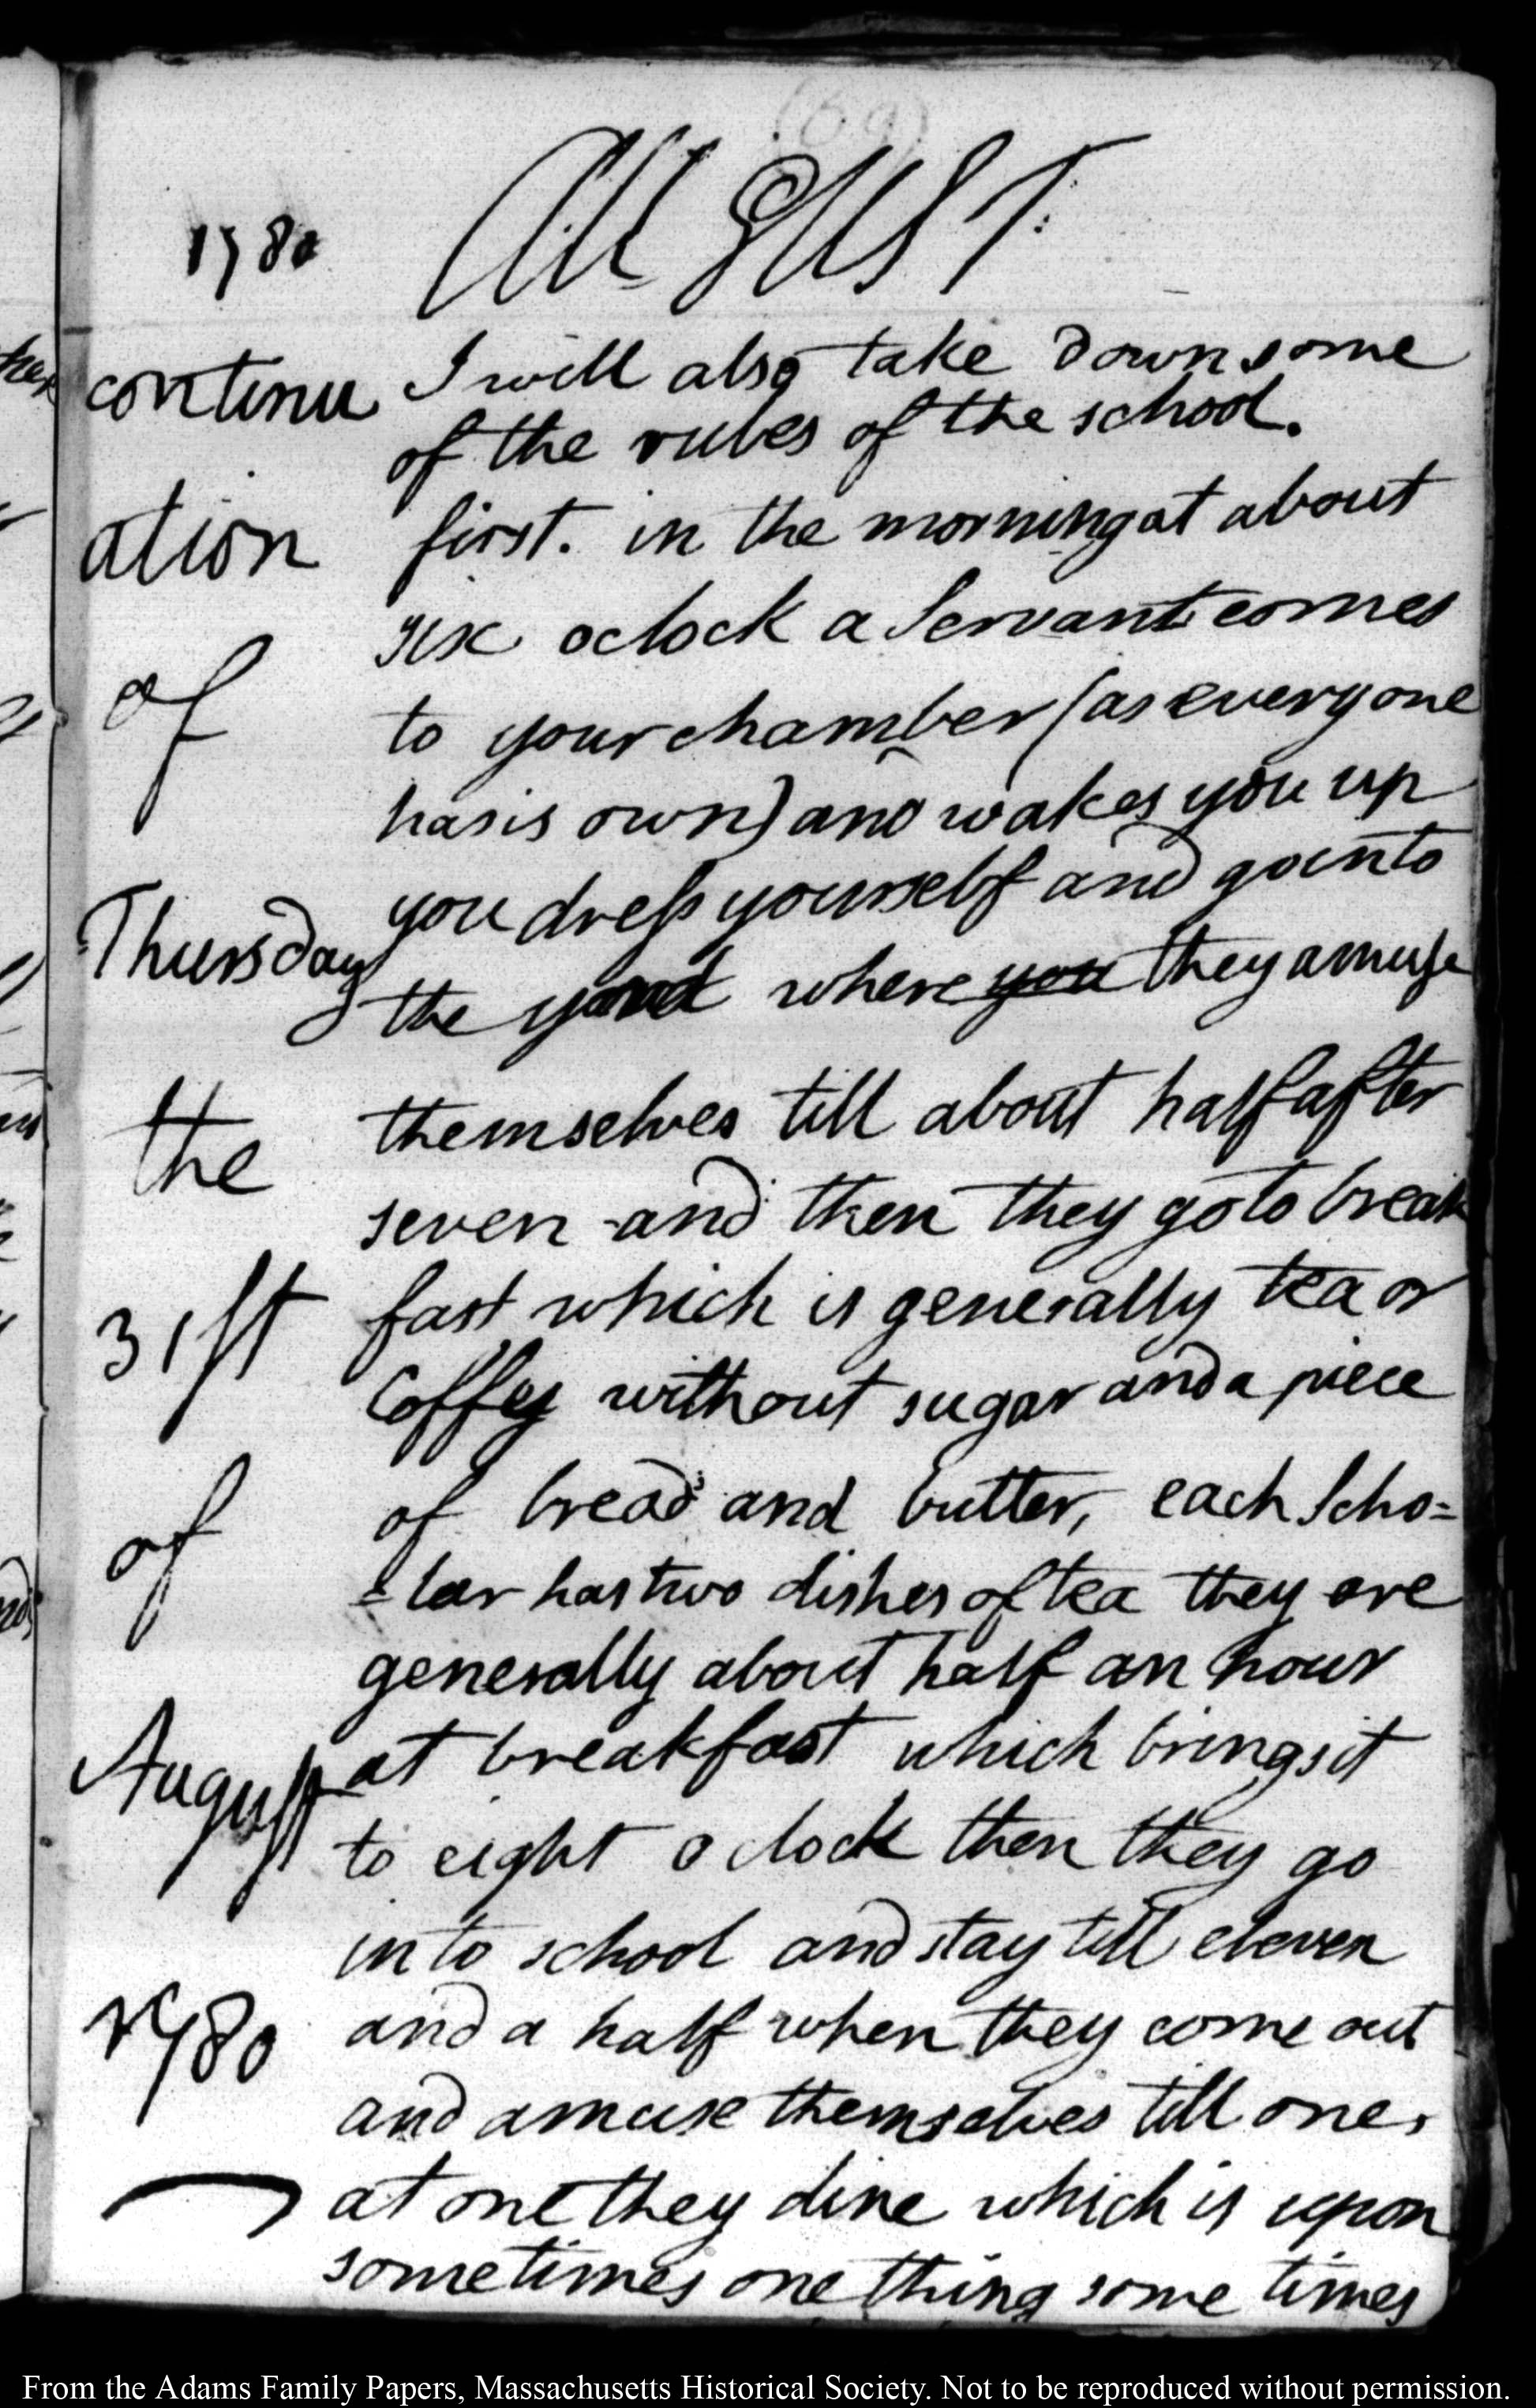 (69)
1780 AUGUST
continu
ation
of
Thursday
the
31st
of
August
1780
I will also take down some
of the rules of the school.
first. in the morning at about
six oclock a Servant comes
to your chamber (as every one
has is own) and wakes you up
you dress yourself and go into
the yard where you they amuse
themselves till about half after
seven and then they go to break
fast which is generally tea or
Coffey without sugar and a piece
of bread and butter, each Scho=
=lar has two dishes of tea they are
generally about half an hour
at breakfast which brings it
to eight o clock then they go
into school and stay till eleven
and a half when they come out
and amuse themselves till one,
at one they dine which is upon
sometimes one thing some times
From the Adams Family Papers, Massachusetts Historical Society. Not to be reproduced without permission.